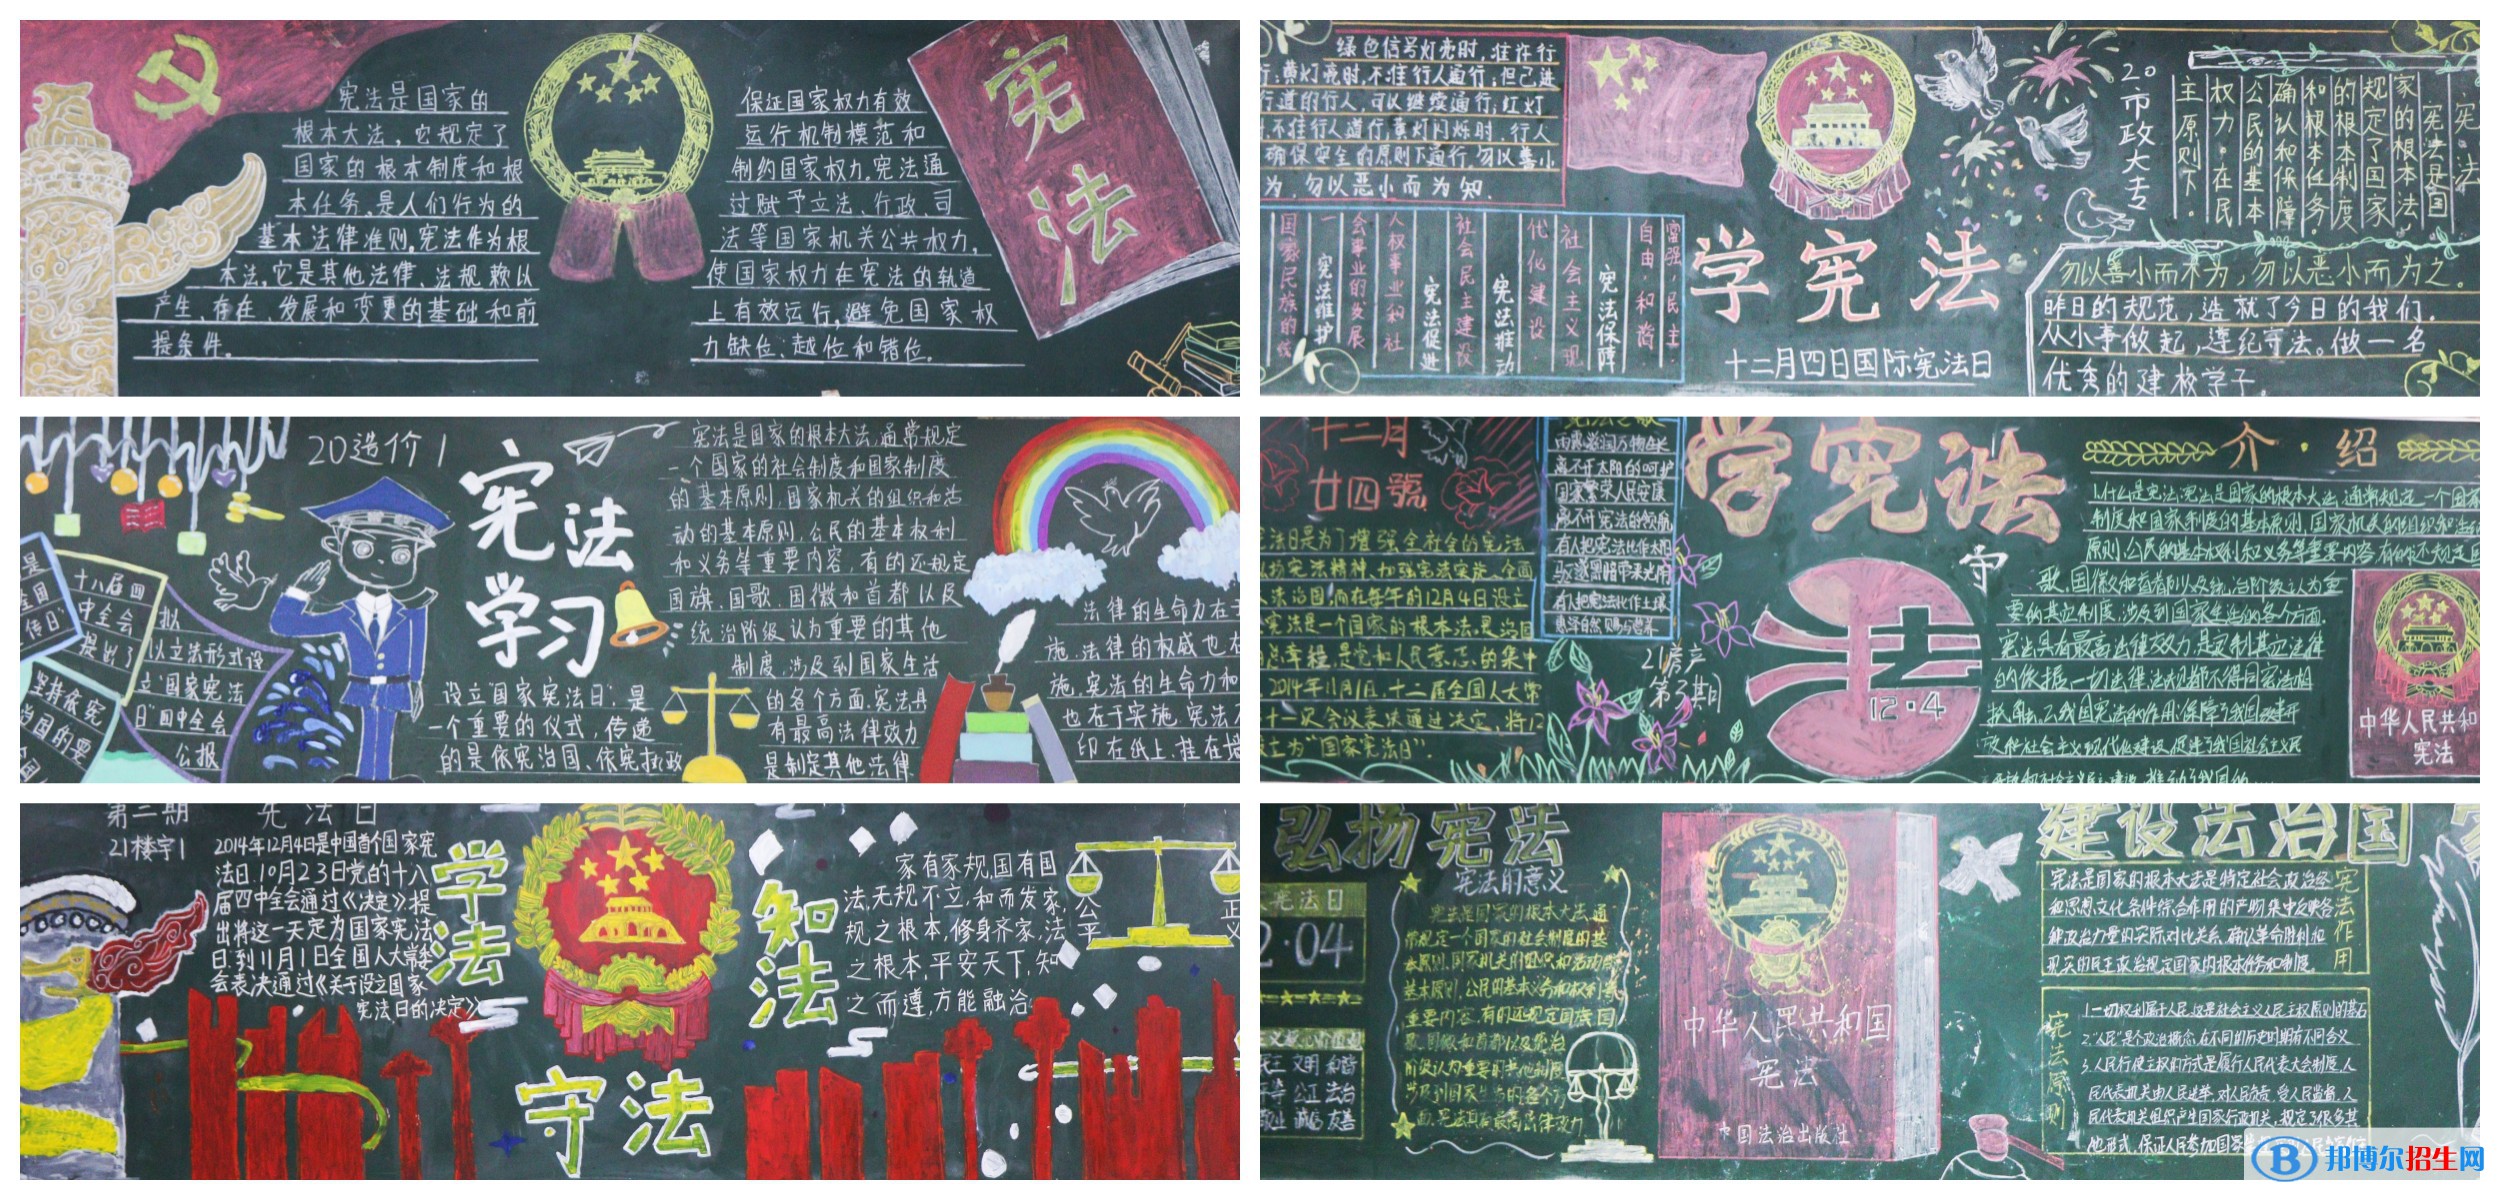 宪法是国家的
根本大法，它规定了
国家的根本制度和根
本任务、是人们行为的
基本法律准则。宪法作为根
本法，它是其他法律、法规赖以
产生、存在、发展和变更的基础和前
提条件。
保证国家权力有效
运行机制模范和
制约国家权力。宪法通
过赋予立法、行政、司
法等国家机关公共权力，
使国家权力在宪法的轨道
上有效运行，避免国家权
力缺位、越位和错位。
宪法
绿色信号灯亮时，准许行
行；黄灯亮时，不准行人通行；但已进
行道的行人，可以继续通行；红灯
不准行人通行；黄灯闪烁时，行人
确保安全的原则下通行。勿以善小
为，勿以恶小而为知．
富强，民主．
自由 和谐
宪法保障
社会主义现
代化建设．
宪法推动
社会民主建设
宪法促进
人权事业和社
会事业的发展
宪法维护
一
国家民族的统
学宪法
十二月四日国际宪法日
20市政大专
宪法
宪法是国
家的根本法，
规定了国家
的根本制度
和根本任务．
确认和保障
公民的基本
权力。在民
主原则下。
勿以善小而不为，勿以恶小而为之。
昨日的规范，造就了今日的我们．
从小事做起，遵纪守法。做一名
优秀的建校学子。
20造价1
宪法
学习
是
全国
传日”
十八届四
中全会
提出了
拟
以立法形式设
立“国家宪法
日”四中全会
公报
坚持依宪
治国的要
设立“国家宪法日”，是
一个重要的仪式，传递
的是依宪治国、依宪执政
宪法是国家的根本大法，通常规定
一个国家的社会制度和国家制度
的基本原则，国家机关的组织和活
动的基本原则，公民的基本权利
和义务等重要内容，有的还规定
国旗、国歌、国徽和首都以及
统治阶级认为重要的其他
制度，涉及到国家生活
的各个方面．宪法具
有最高法律效力
是制定其他法律
法律的生命力在于
施．法律的权威也在
施．宪法的生命力和
也在于实施．宪法不
印在纸上，挂在墙
十二月
廿四號
法日是为了增强全社会的宪法
扬宪法精神、加强宪法实施、全面
依法治国，而在每年的12月4日设立
宪法是一个国家的根本法，是治国
总章程，是党和人民意志的集中
2014年11月1日，十二届全国人大常
十一次会议表决通过决定，将12
设立为“国家宪法日”．
宪法之歌
雨露滋润万物生长
离不开太阳的呵护
国家繁荣人民安康
离不开宪法的领航
有人把宪法比作太阳
驱逐黑暗带来光明
有人把宪法比作土壤
学宪法
守
法
12·4
21房产
第3期
介·绍
1.什么是宪法：宪法是国家的根本大法，通常规定一个国家
制度和国家制度的基本原则、国家机关的组织和活动
原则，公民的基本权利和义务等重要内容，有的还规定国
歌、国徽和首都以及统治阶级认为重
要的其他制度，涉及到国家生活的各个方面．
宪法具有最高法律效力，是定制其它法律
的依据，一切法律、法规都不得同宪法相
抵触。2.我国宪法的作用：保障了我国改革开
放和社会主义现代化建设，促进了我国社会主义民
中华人民共和
宪法
第二期 宪法日
21楼宇1
2014年12月4日是中国首个国家宪
法日．10月23日党的十八
届四中全会通过《决定》提
出将这一天定为国家宪法
日．到11月1日全国人大常委
会表决通过《关于设立国家
宪法日的决定》
学法
知法
守法
家有家规国有国
法，无规不立，和而发家，
规之根本，修身齐家，法
之根本，平安天下，知
之而遵，方能融洽．
公平
正义
弘扬宪法
宪法日
2·04
民主 文明 和谐
平等 公正 法治
敬业 诚信 友善
宪法的意义
宪法是国家的根本大法，通
常规定一个国家的社会制度的基
本原则，国家机关的组织和活动的
基本原则，公民的基本义务和权利等
重要内容，有的还规定国旗国
歌，国徽和首都以及统治
阶级认为重要的其他制度
涉及到国家生活的各个方
面．宪法具有最高法律效力
中华人民共和国
宪法
中国法治出版社
建设法治国家
宪法作用
宪法是国家的根本大法，是特定社会政治经
和思想文化条件综合作用的产物，集中反映各
种政治力量的实际对比关系，确认革命胜利和
现实的民主政治规定国家的根本任务和制度．
宪法原则
1.一切权利属于人民，这是社会主义人民主权原则的基石
2.“人民”是个政治概念，在不同的历史时期有不同含义
3.人民行使主权的方式是履行人民代表大会制度，人
民代表机关由人民选举，对人民负责，受人民监督，人
民代表机关组织产生国家行政机关，规定了很多其
他形式，保证人民参加国家
邦博尔招生网